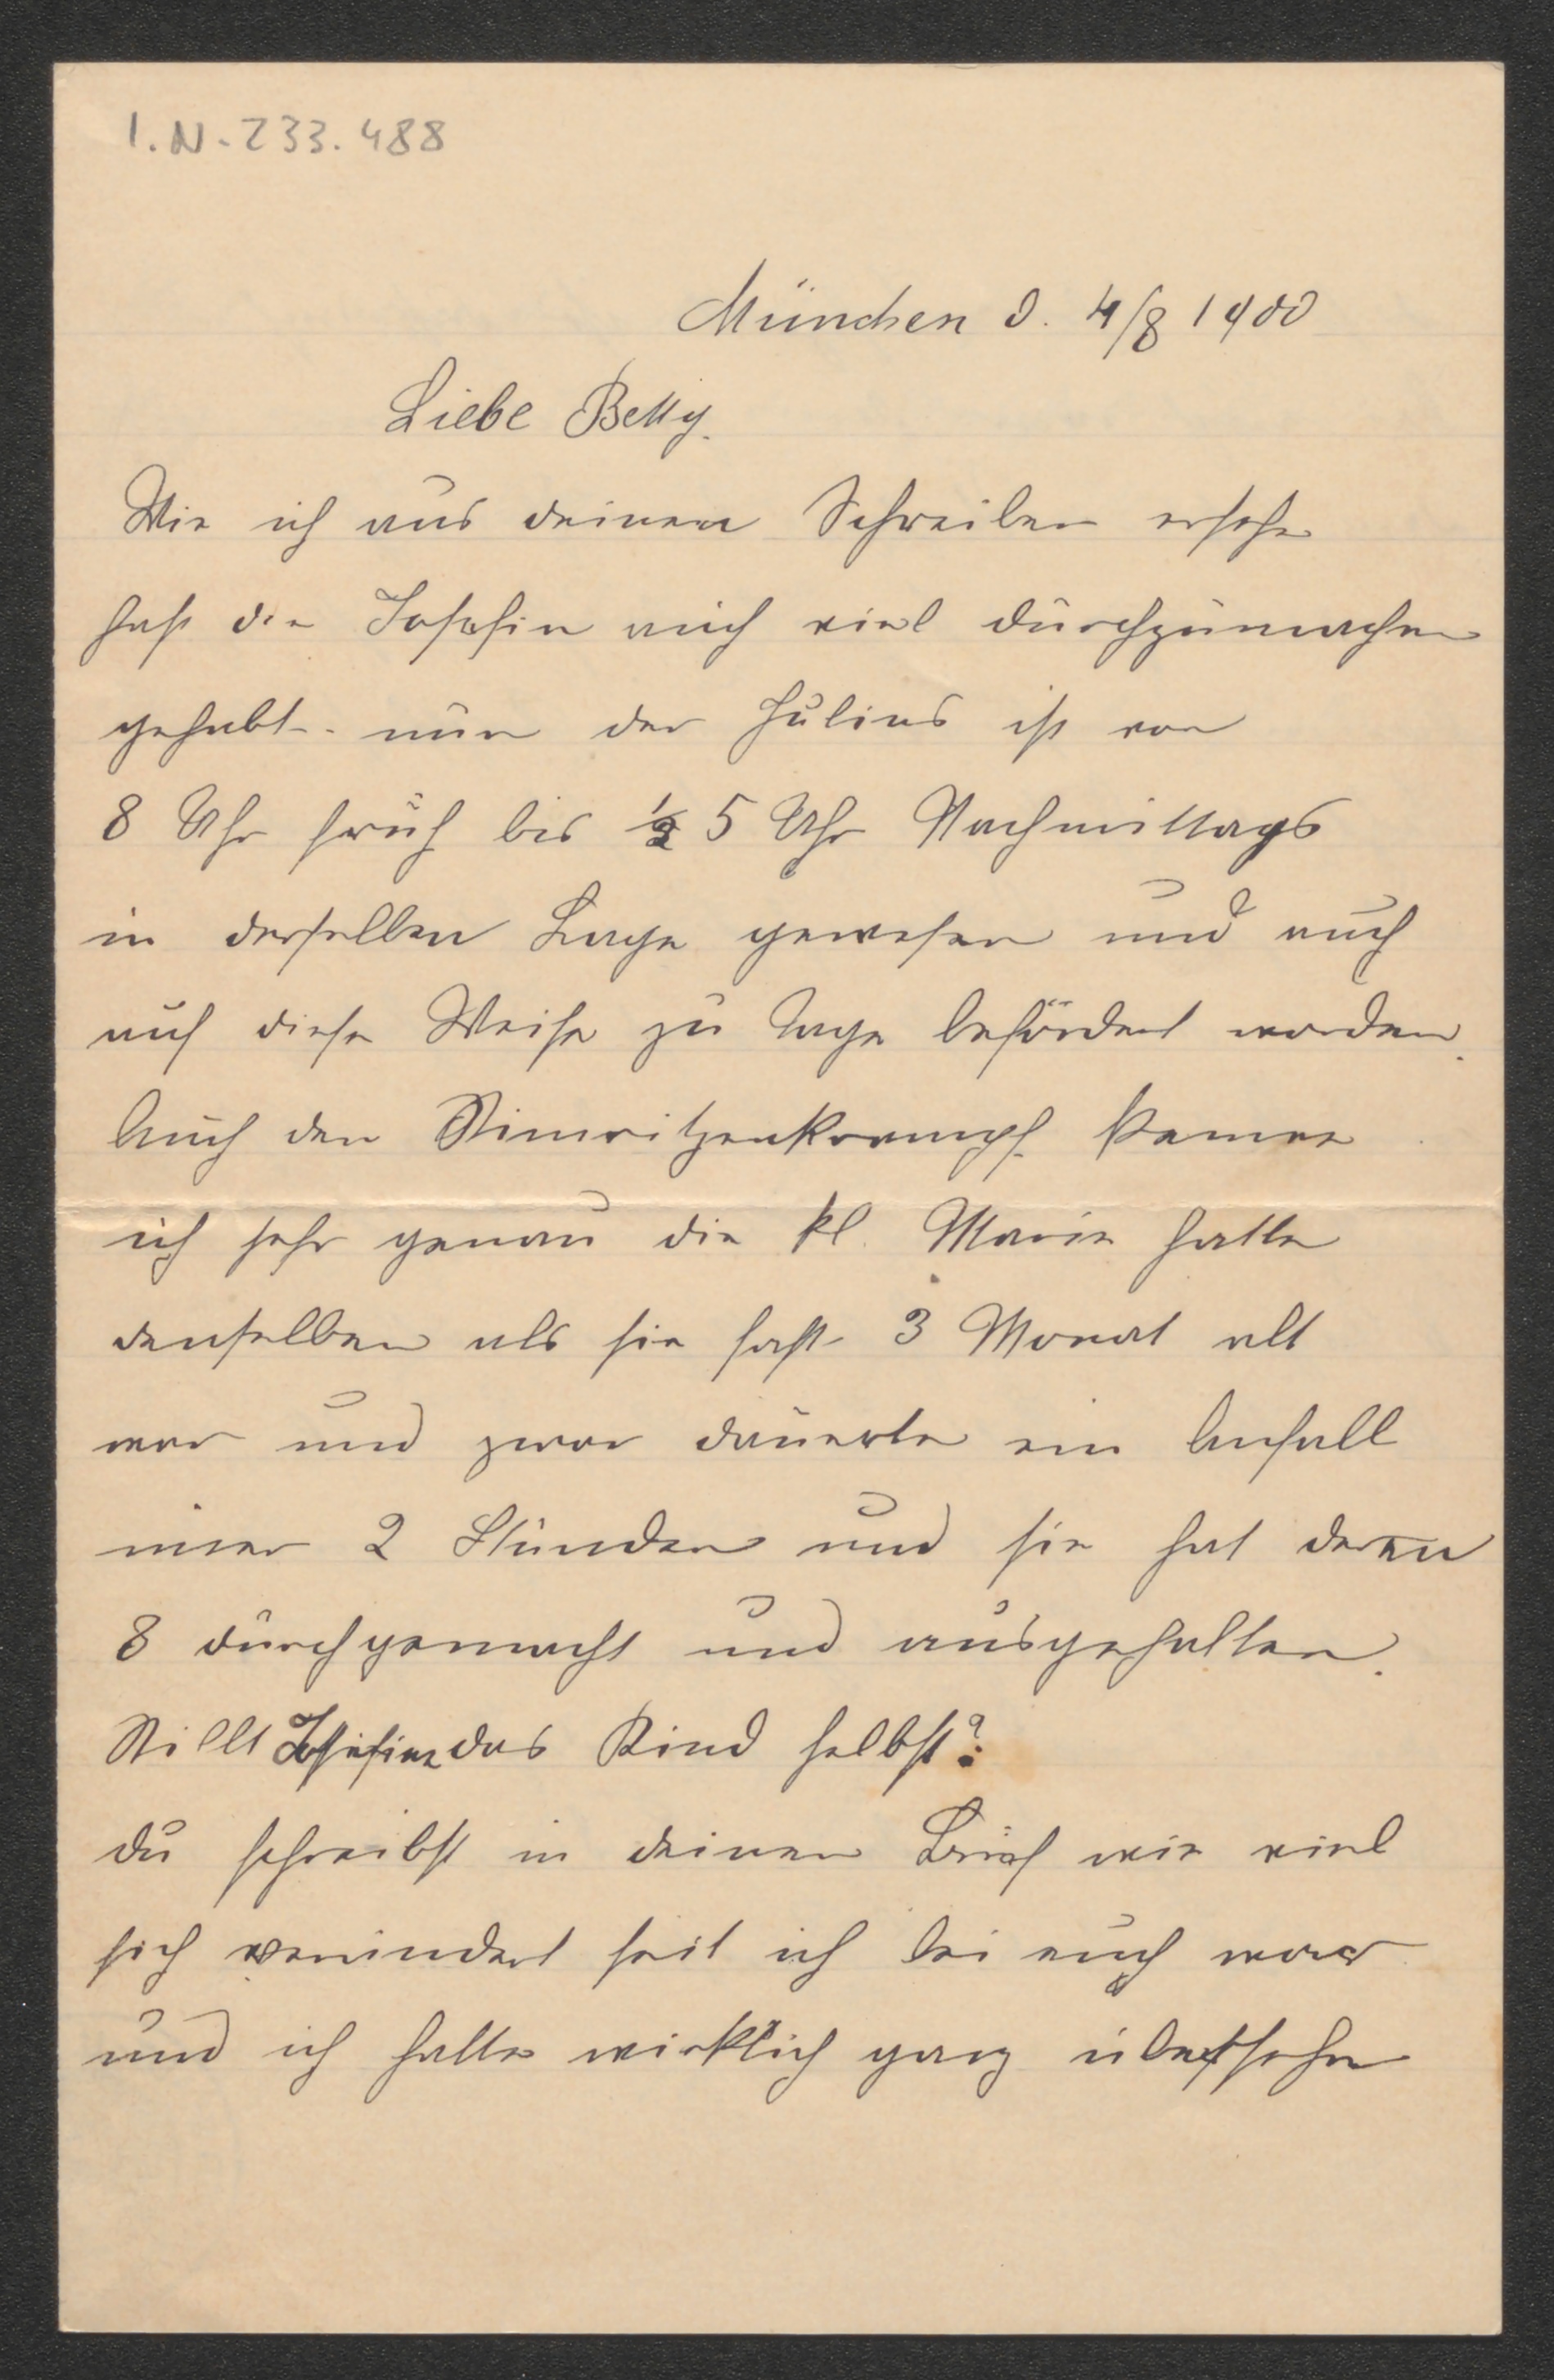 I.N. 233.488
München d. 4/8 1900
Liebe Betty.
Wie ich aus deinem Schreiben ersehe
hast die Josefin auch viel durchzumachen
gehabt. nun der Julius ist von
8 Uhr früh bis ½ 5 Uhr Nachmittags
in derselben Lage gewesen und auch
auf diese Weise zu Tage befördert worden.
Auch den Stimmritzenkrampf kenne
ich sehr genau die kl. Marie hatte
denselben als sie fast 3 Monat alt
war und zwar dauerte ein Anfall
imer 2 Stunden und sie hat deren
8 durchgemacht und ausgehalten.
Stillt Josefine das Kind selbst?
du schreibst in deinen Brief wie viel
sich verändert seit ich bei euch war
und ich hatte wirklich ganz übersehen